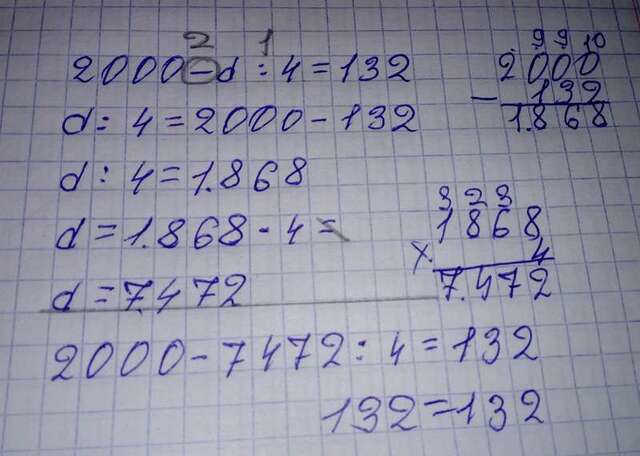 2 1
2000 - d : 4 = 132
d : 4 = 2000 - 132
d : 4 = 1.868
d = 1.868 · 4 =
d = 7.472
2000 - 7472 : 4 = 132
132 = 132
9 9 10
2000
- 132
1.868
3 2 3
1868
x. 4
7.472